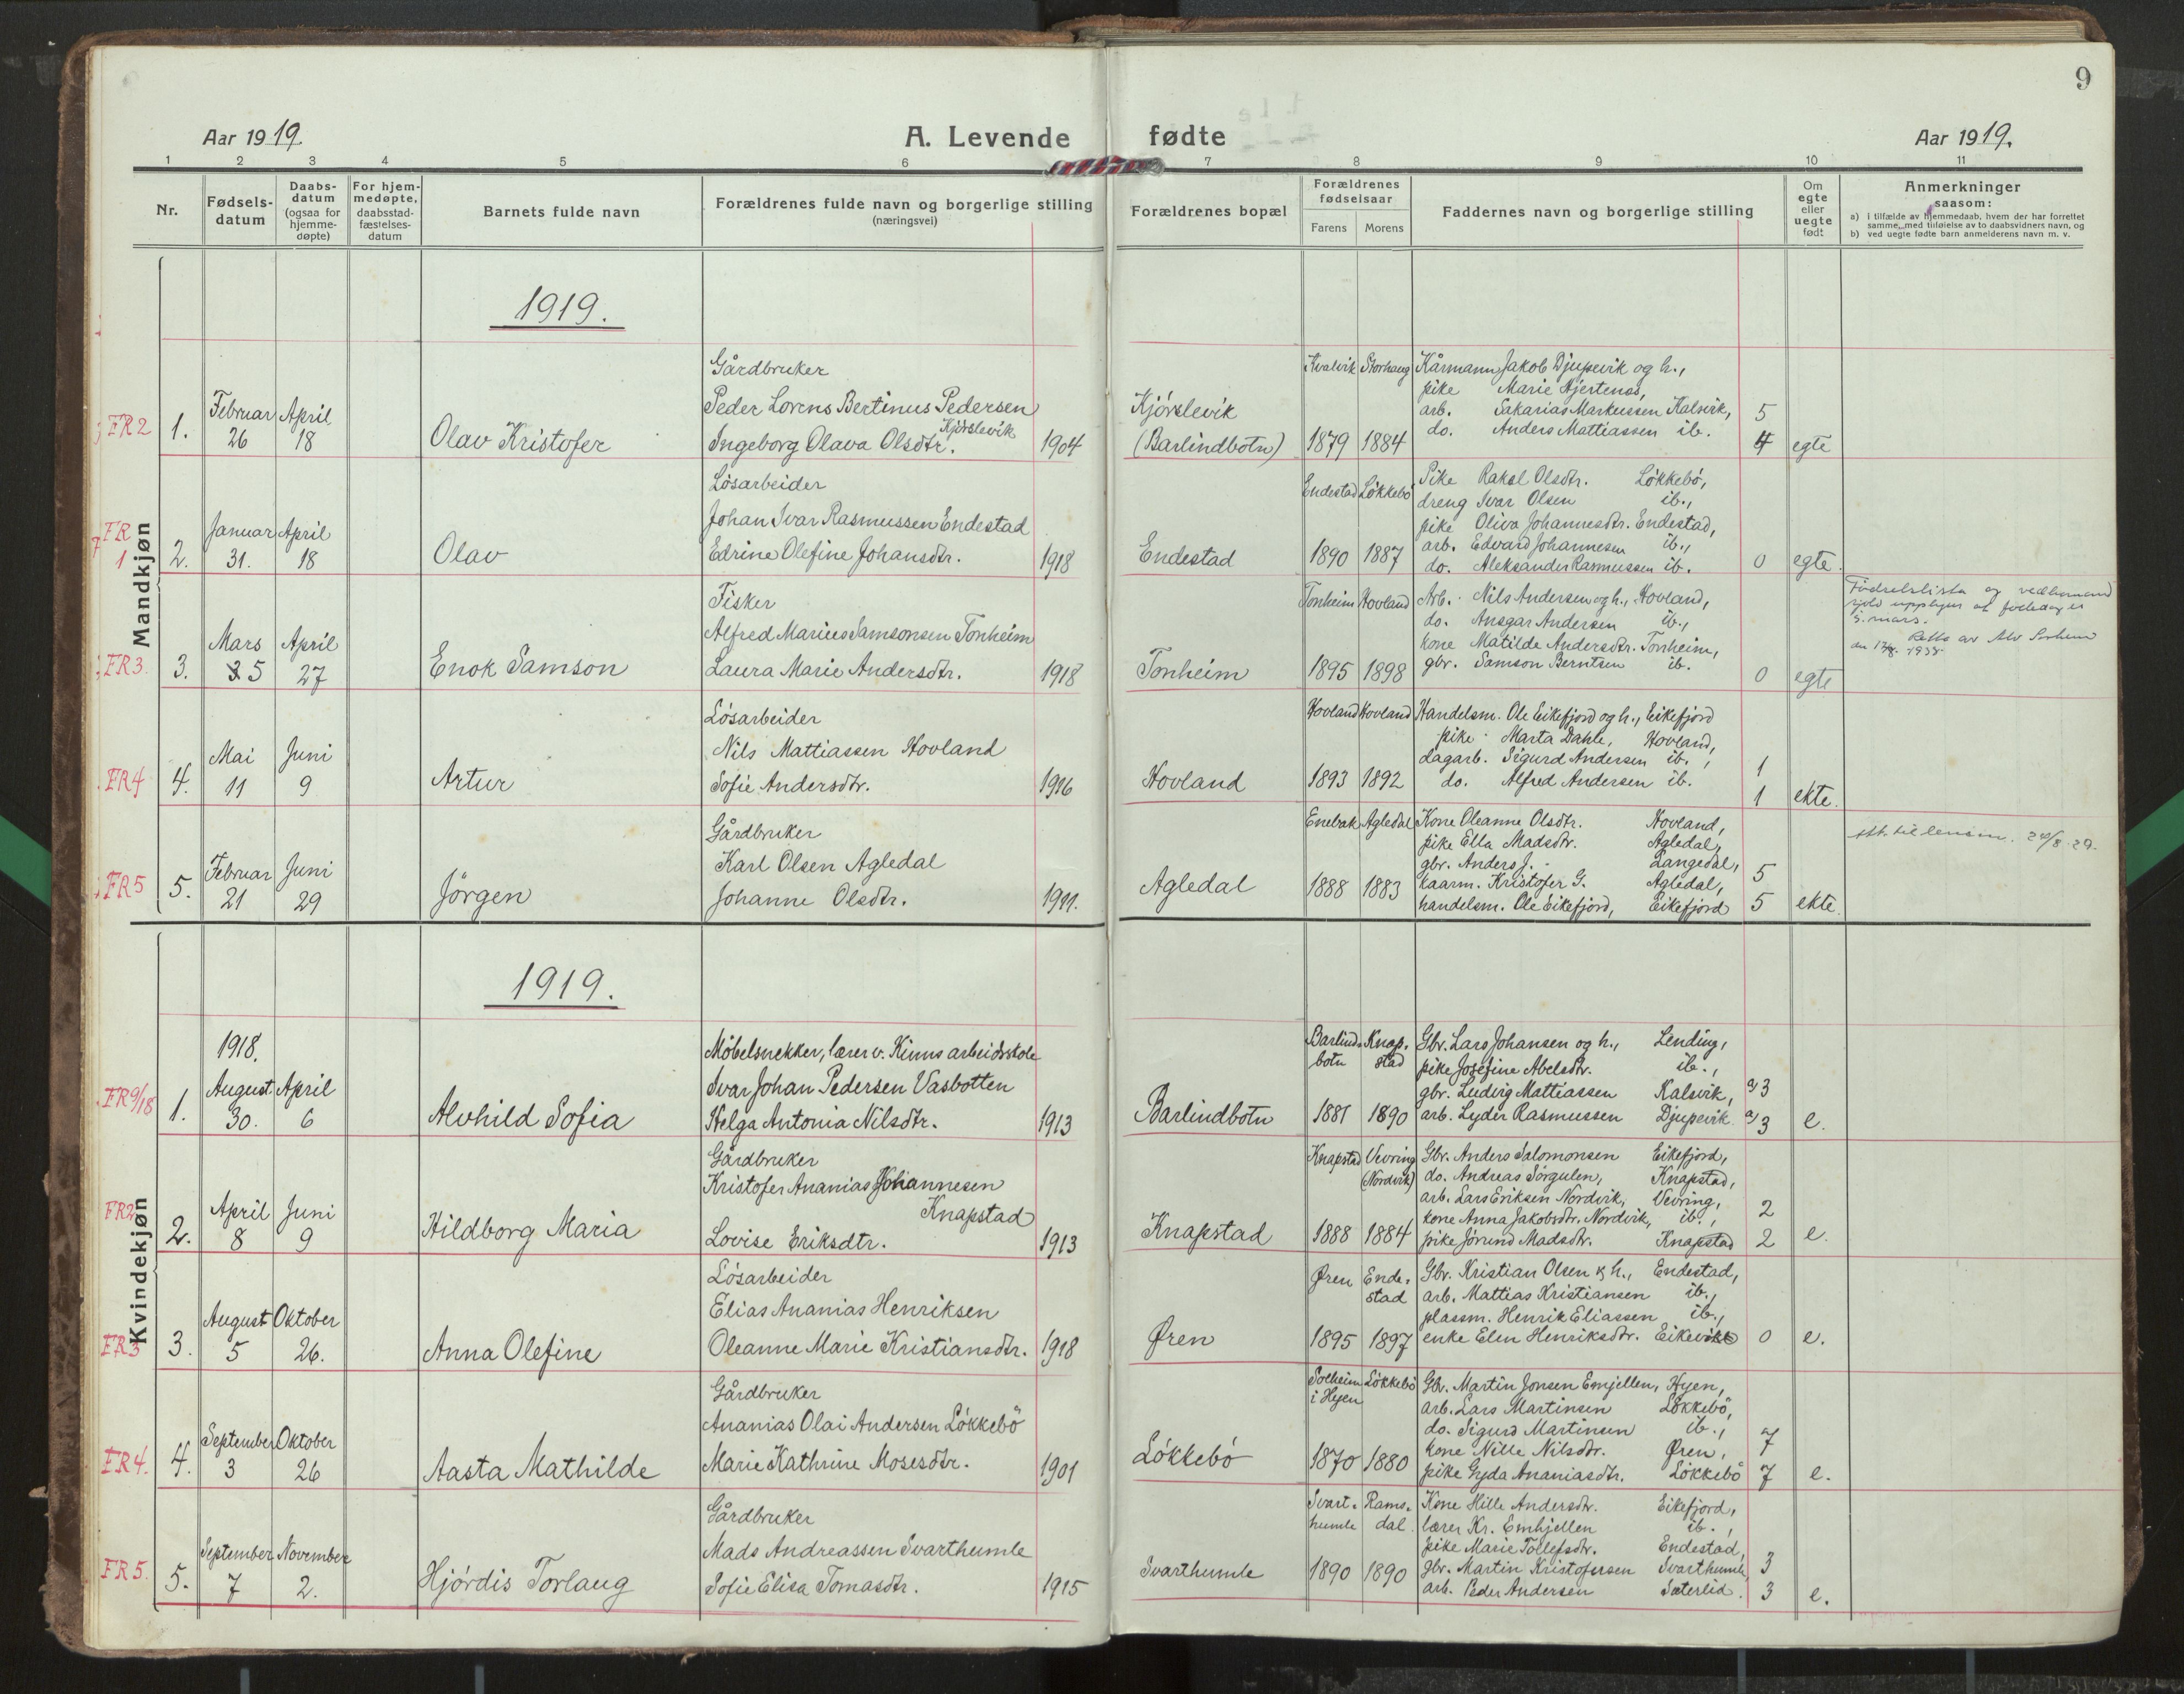 9
Aar 1919.
A. Levende fødte
Aar 1919.
1 2 3 4 5 6 7 8 9 10 11
Nr.
Fødsels-
datum
Daabs-
datum
(ogsaa for
hjemme-
døpte)
For hjem-
medøpte,
daabsstad-
fæstelses-
datum
Barnets fulde navn
Forældrenes fulde navn og borgerlige stilling
(næringsvei)
Forældrenes bopæl
Forældrenes
fødselsaar
Farens Morens
Faddernes navn og borgerlige stilling
Om
egte
eller
uegte
født
Anmerkninger
saasom:
a) i tilfælde av hjemmedaab, hvem der har forrettet
samme, med tilføielse av to daabsvidners navn, og
b) ved uegte fødte barn anmelderens navn m. v.
Mandkjøn
1919.
FR2
1.
Februar
26
April
18
Olav Kristofer
Gårdbruker
Peder Lorens Bertinus Pedersen
Kjörslevik
Ingeborg Olava Olsdtr.
1904
Kjörslevik
(Barlindbotn)
Kvalvik Storhaug
1879 1884
Kårmann Jakob Djupevik og h.,
pike Marie Hjertenes,
arb. Sakarias Markussen Kalsvik,
do. Anders Mattiassen ib.
5
4
egte
FR
1
2.
Januar
31.
April
18
Olav
Lösarbeider
Johan Ivar Rasmussen Endestad
Edrine Olefine Johansdtr.
1918
Endestad
Endestad Lökkebö
1890 1887
Pike Rakel Olsdtr. Lökkebö,
dreng Ivar Olsen ib.,
pike Oliva Johannesdtr. Endestad,
arb. Edvard Johannesen ib.,
do. Aleksander Rasmussen ib.
0
egte.
FR3.
3.
Mars
3 5
April
27
Enok Samson
Fisker
Alfred Marius Samsonsen Tonheim
Laura Marie Andersdtr.
1918
Tonheim
Tonheim Hovland
1895 1898
Arb. Nils Andersen og h., Hovland,
do. Ansgar Andersen ib.,
kone Matilde Andersdtr. Tonheim,
gbr. Samson Berntsen ib.
0
egte
Fødselslista og
5. mars.
1938
FR4
4.
Mai
11
Juni
9
Artur
Lösarbeider
Nils Mattiassen Hovland
Sofie Andersdtr.
1916
Hovland
Hovland Hovland
1893 1892
Handelsm. Ole Eikefjord og h., Eikefjord
pike Marta Dahle, Hovland,
dagarb. Sigurd Andersen ib.,
do. Alfred Andersen ib.
1
1
ekte.
FR5
5.
Februar
21
Juni
29
Jörgen
Gårdbruker
Karl Olsen Agledal
Johanne Olsdtr.
1911.
Agledal
Enebak Agledal
1888 1883
Kone Oleanne Olsdtr. Hovland,
pike Ella Madsdtr. Agledal,
gbr. Anders J. Langedal,
kaarm. Kristofer G. Agledal,
handelsm. Ole Eikefjord, Eikefjord
5
5
ekte.
Att. til lensm. 24/8-29.
Kvindekjøn
1919.
FR9/18
1.
1918.
August
30.
April
6
Alvhild Sofia
Möbelsnekker, lærer v. Kinns arbeidsskole
Ivar Johan Pedersen Vasbotten
Helga Antonia Nilsdtr.
1913
Barlindbotn
Barlind-
botn
Knap-
stad
1881 1890
Gbr. Lars Johansen og h., Lending,
pike Josefine Abelsdtr. ib.,
gbr. Ludvig Mattiassen Kalsvik,
arb. Lyder Rasmussen Djupevik
3
3
e.
FR2
2.
April
8
Juni
9
Hildborg Maria
Gårdbruker
Kristofer Ananias Johannesen
Knapstad
Lovise Eriksdtr.
1913
Knapstad
Knapstad Vevring
(Nordvik)
1888 1884
Gbr. Anders Salomonsen Eikefjord,
do. Andreas Sørgulen, Knapstad,
arb. Lars Eriksen Nordvik, Vevring,
kone Anna Jakobsdtr. Nordvik, ib.,
pike Jörind Madsdtr. Knapstad
2
2
e.
FR3
3.
August
5
Oktober
26.
Anna Olefine
Lösarbeider
Elias Ananias Henriksen
Oleanne Marie Kristiansdtr.
1918
Øren
Øren Ende-
stad
1895 1897
Gbr. Kristian Olsen & h., Endestad,
arb. Mattias Kristiansen ib.,
plassm. Henrik Eliassen ib.,
enke Elen Henriksdtr.
0
e.
FR4.
4.
September
3
Oktober
26
Aasta Mathilde
Gårdbruker
Ananias Olai Andersen Lökkebö
Marie Kathrine Mosesdtr.
1901
Lökkebö
Solheim
i Hyen
Lökkebö
1870 1880
Gbr. Martin Jonsen Emjellen, Hyen,
arb. Lars Martinsen Lökkebö,
do. Sigurd Martinsen ib.,
kone Nille Nilsdtr. Øren,
pike Gyda Ananiasdtr. Lökkebö
7
7
e.
FR5.
5.
September
7
November
2.
Hjördis Torlaug
Gårdbruker
Mads Andreassen Svarthumle
Sofie Elisa Tomasdtr.
1915
Svarthumle
Svart-
humle
Rams-
dal.
1890 1890
Kone Hille Andersdtr. Eikefjord,
lærer Kr. Emhjellen ib.,
pike Marie Tollefsdtr. Endestad,
gbr. Martin Kristofersen Svarthumle
arb. Peder Andersen Sæterlid.
3
3
e.